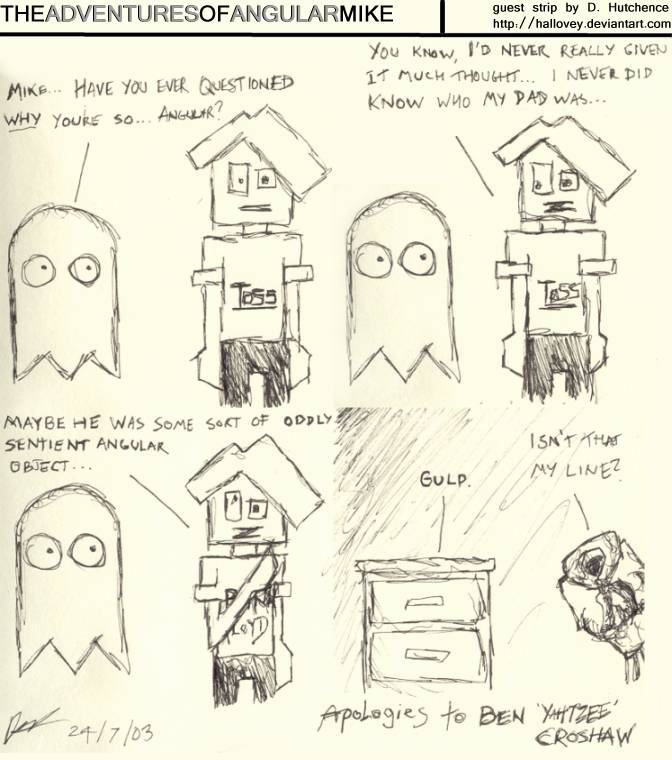 THEADVENTURESOFANGULARMIKE
guest strip by D. Hutchence
http://hallovey.deviantart.com
MIKE... HAVE YOU EVER QUESTIONED
WHY YOU'RE SO... ANGULAR?
TOSS
YOU KNOW, I'D NEVER REALLY GIVEN
IT MUCH THOUGHT... I NEVER DID
KNOW WHO MY DAD WAS...
TOSS
MAYBE HE WAS SOME SORT OF ODDLY
SENTIENT ANGULAR
OBJECT...
GULP.
ISN'T THAT
MY LINE?
24/7/03
Apologies to BEN 'YAHTZEE'
CROSHAW